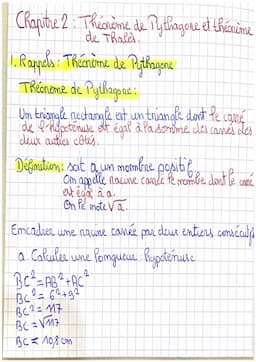 Chapitre 2 : Théorème de Pythagore et théorème
de Thalès.
1. Rappels : Théorème de Pythagore
Théorème de Pythagore :
Un triangle rectangle est un triangle dont le carré
de l'hypoténuse est égal à la somme des carrés des
deux autres côtés.
Définition : soit a un nombre positif
On appelle racine carrée le nombre dont le carré
est égal à a.
On le note √a.
Encadrer une racine carrée par deux entiers consécutifs
a. Calculer une longueur hypoténuse
BC² = AB² + AC²
BC² = 6² + 9²
BC² = 117
BC = √117
BC ≈ 10,8 cm